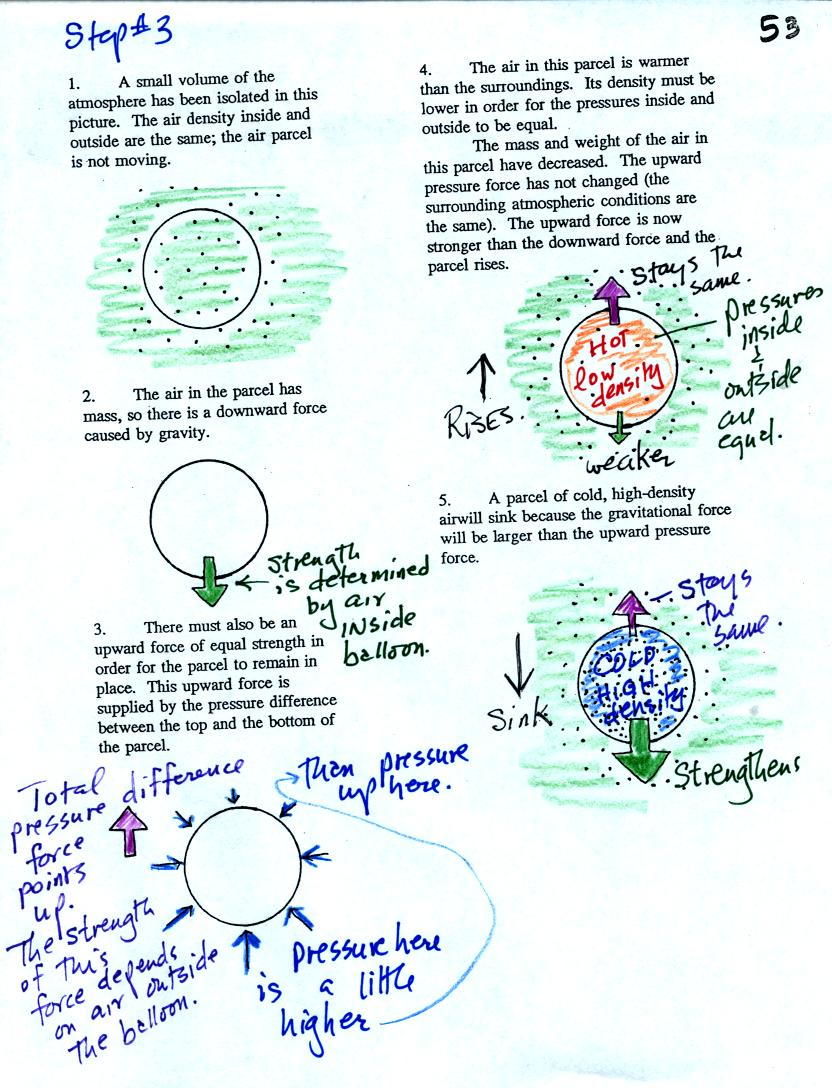 Step #3
53
1. A small volume of the
atmosphere has been isolated in this
picture. The air density inside and
outside are the same; the air parcel
is not moving.
2. The air in the parcel has
mass, so there is a downward force
caused by gravity.
strength
is determined
by air
INside
balloon.
3. There must also be an
upward force of equal strength in
order for the parcel to remain in
place. This upward force is
supplied by the pressure difference
between the top and the bottom of
the parcel.
Total
pressure difference
force
points
up.
The strength
of this
force depends
on air outside
the balloon.
than pressure
up here.
pressure here
is a little
higher
4. The air in this parcel is warmer
than the surroundings. Its density must be
lower in order for the pressures inside and
outside to be equal.
The mass and weight of the air in
this parcel have decreased. The upward
pressure force has not changed (the
surrounding atmospheric conditions are
the same). The upward force is now
stronger than the downward force and the
parcel rises.
Stays the
same.
HOT
low
density
pressures
inside
&
outside
are
equal.
RISES.
weaker
5. A parcel of cold, high-density
airwill sink because the gravitational force
will be larger than the upward pressure
force.
Stays
the
same.
COLD
HIGH
density
Sink
Strengthens